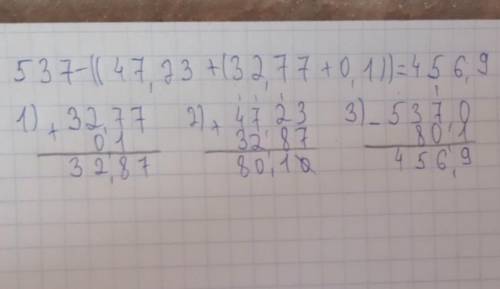 537-((47,23+(32,77+0,1))=456,9
1) + 32,77 2) + 47,23 3) - 537,0
0,1 32,87 80,1
32,87 80,10 456,9